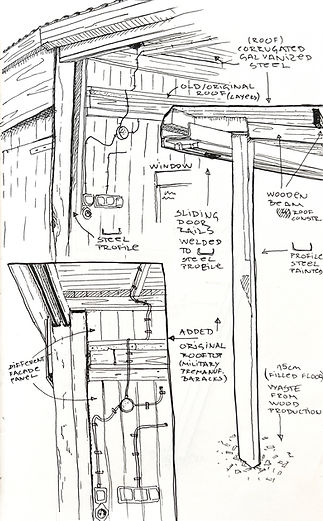 (ROOF)
CORRUGATED
GALVANIZED
STEEL
OLD/ORIGINAL
ROOF (LAYERS)
WINDOW
STEEL
PROFILE
SLIDING
DOOR
RAILS
WELDED
TO
STEEL
PROFILE
WOODEN
BEAM
ROOF
CONSTR.
PROFILE
STEEL
PAINTED
DIFFERENT
FACADE
PANEL
ADDED
ORIGINAL
ROOFTOP
(MILITARY
PREMANUF.
BARACKS)
15cm
(FILLED FLOOR)
WASTE
FROM
WOOD
PRODUCTION